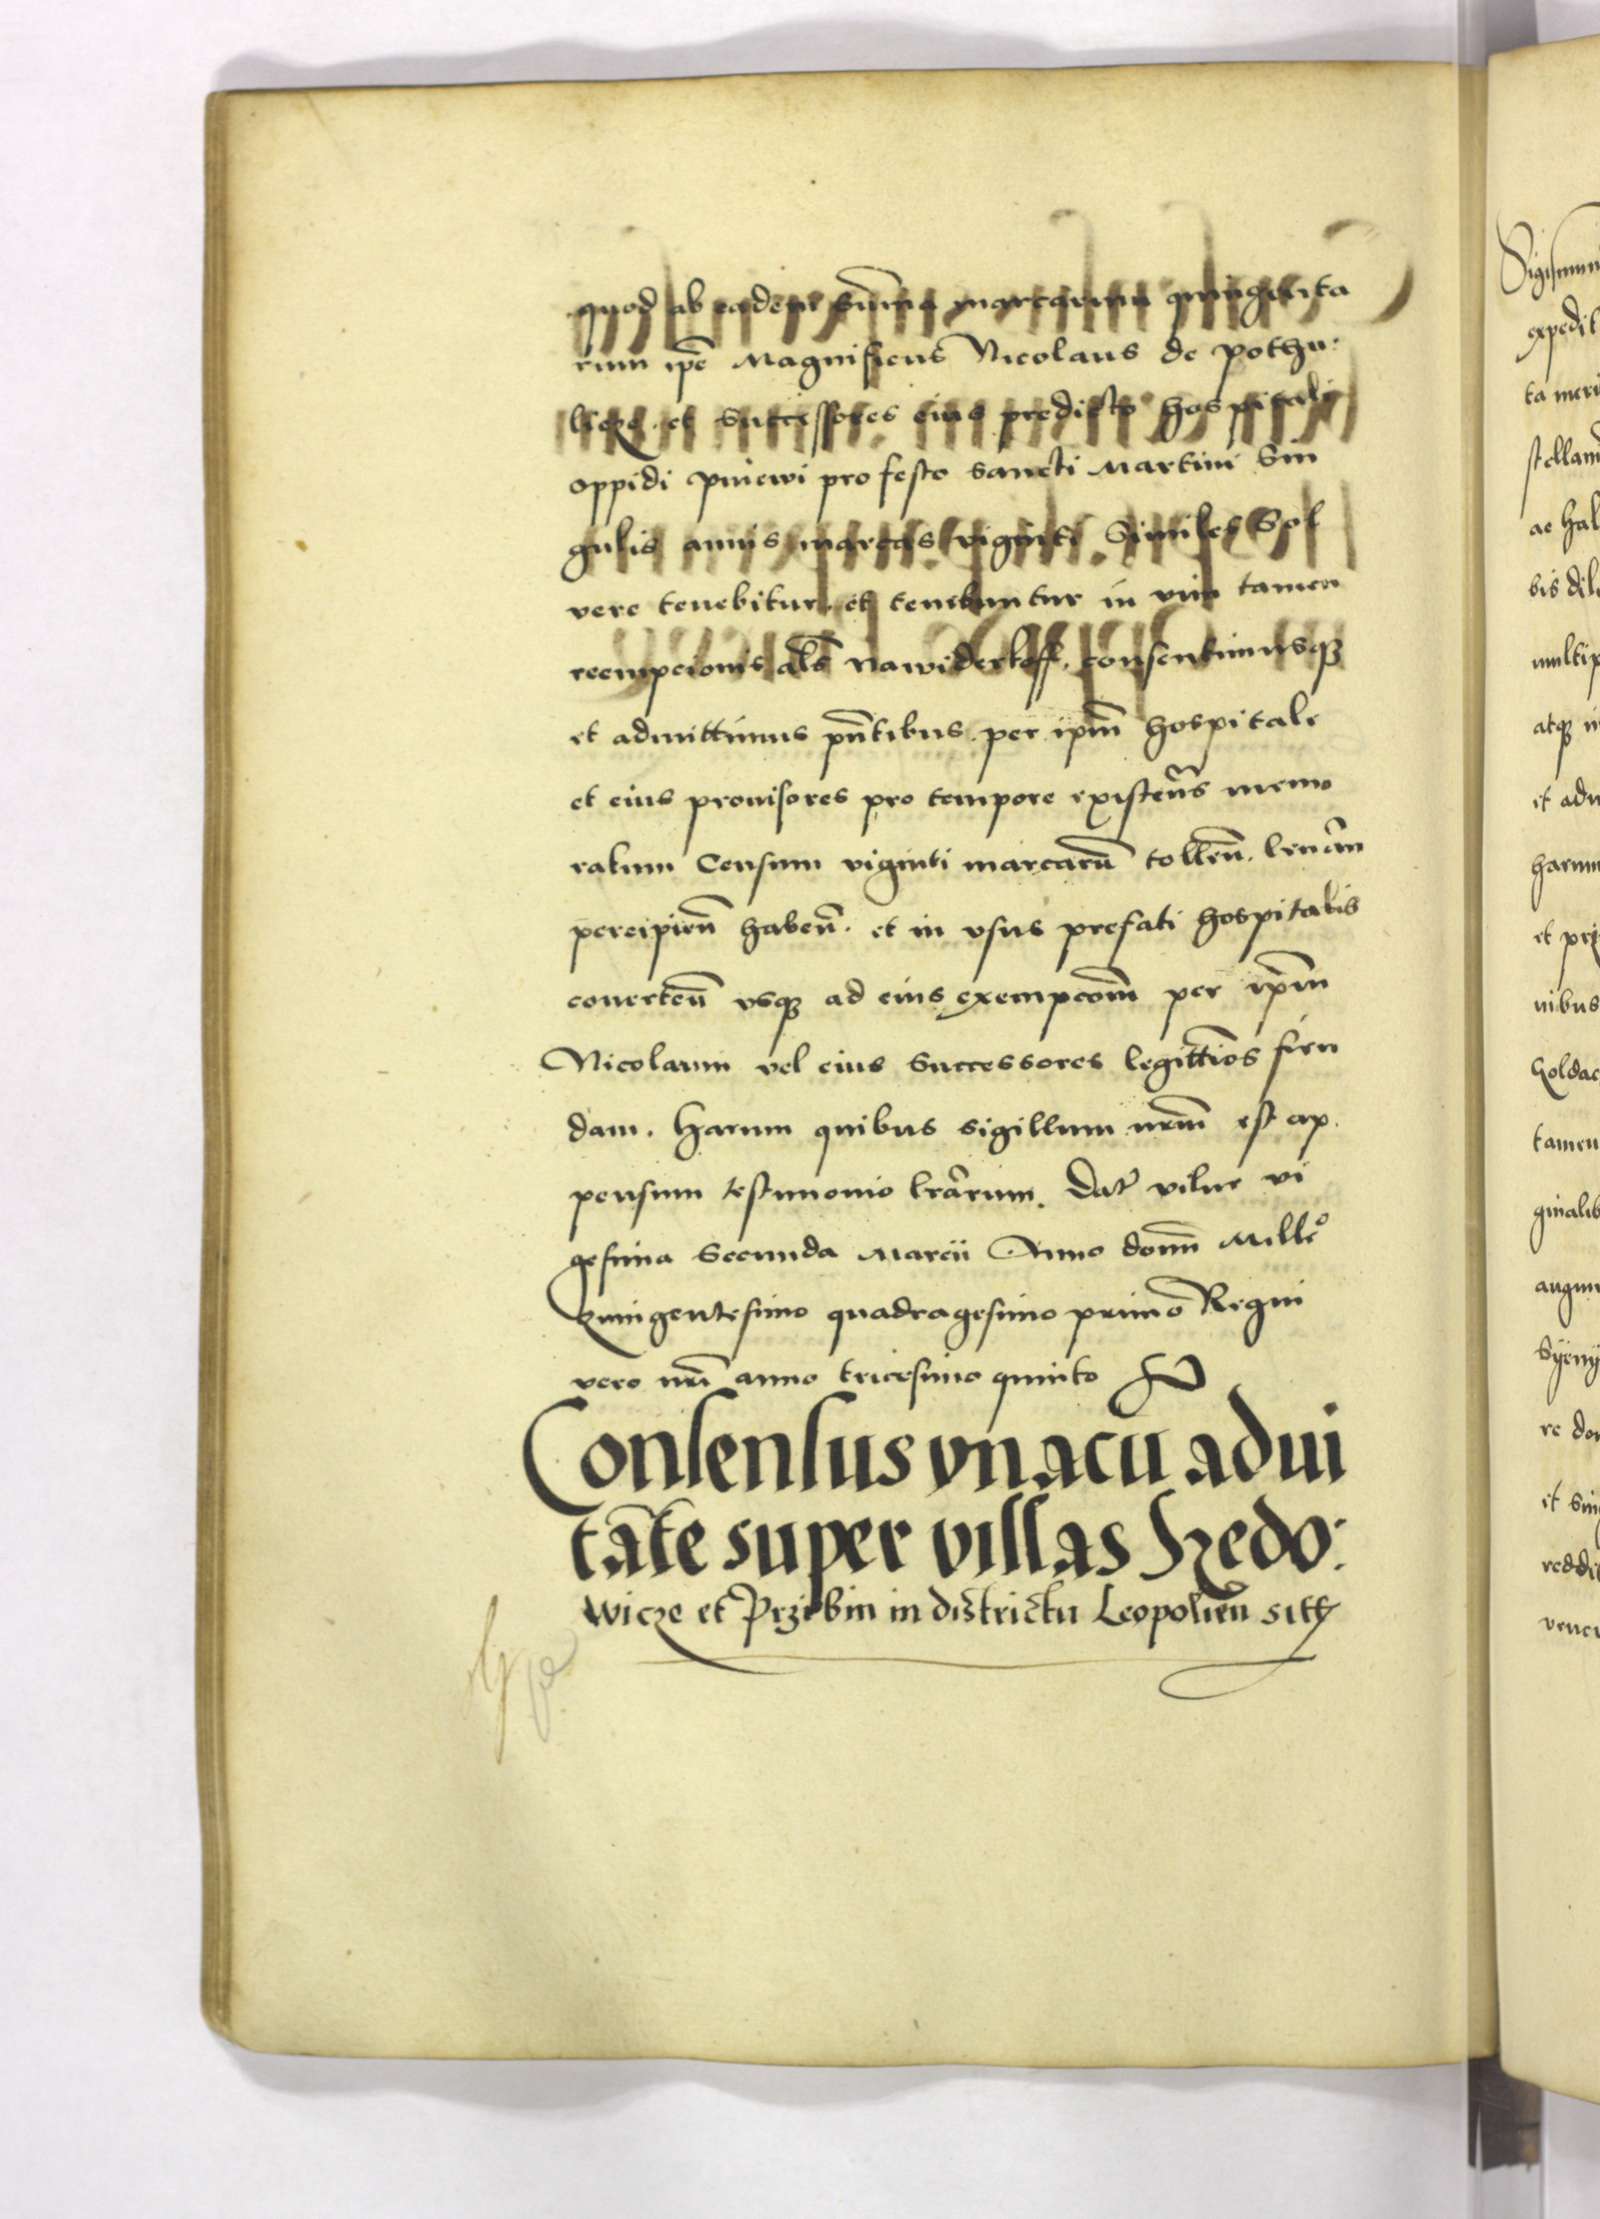 quod ab eadem sūma marcarum quingenta
rum ip̄e Magnificus Nicolaus de pothu:
licze et successores eius predicto hospitali
oppidi pniewi pro festo sancti Martini Sin
gulis annis marcas viginti Similes Sol
vere tenebitur et tenebuntur in vim tamen
reempcionis al̄s nawiderkoff, consentimusqz
et admittimus pn̄tibus per ip̄m hospitale
et eius provisores pro tempore existen̄s memo
ratum Censum viginti marcarū tollen̄. levan̄
percipien̄ haben̄. et in vsus prefati hospitalis
converten̄ vsqz ad eius exempcōm per ip̄m
Nicolaum vel eius Successores legittīos fien
dam. Harum quibus sigillum nr̄m est ap
pensum testimonio lrārum. Dat̄ vilne vi
gesima Secunda Marcii Anno domī Milleo
Quingentesimo quadragesimo primo Regni
vero nr̄i anno tricesimo quinto
Consensus vnacū advi
tāte super villas Hredo:
wicze et Przibin in districtu Leopolien̄ sitt
Sigismun
expedit
ta meri
stellam
ac hal
bis dil
multip
atqz in
et adm
harum
et pri
nibus
Holdac
tamen
ginalib
augm
re do
et sin
reddi
vener